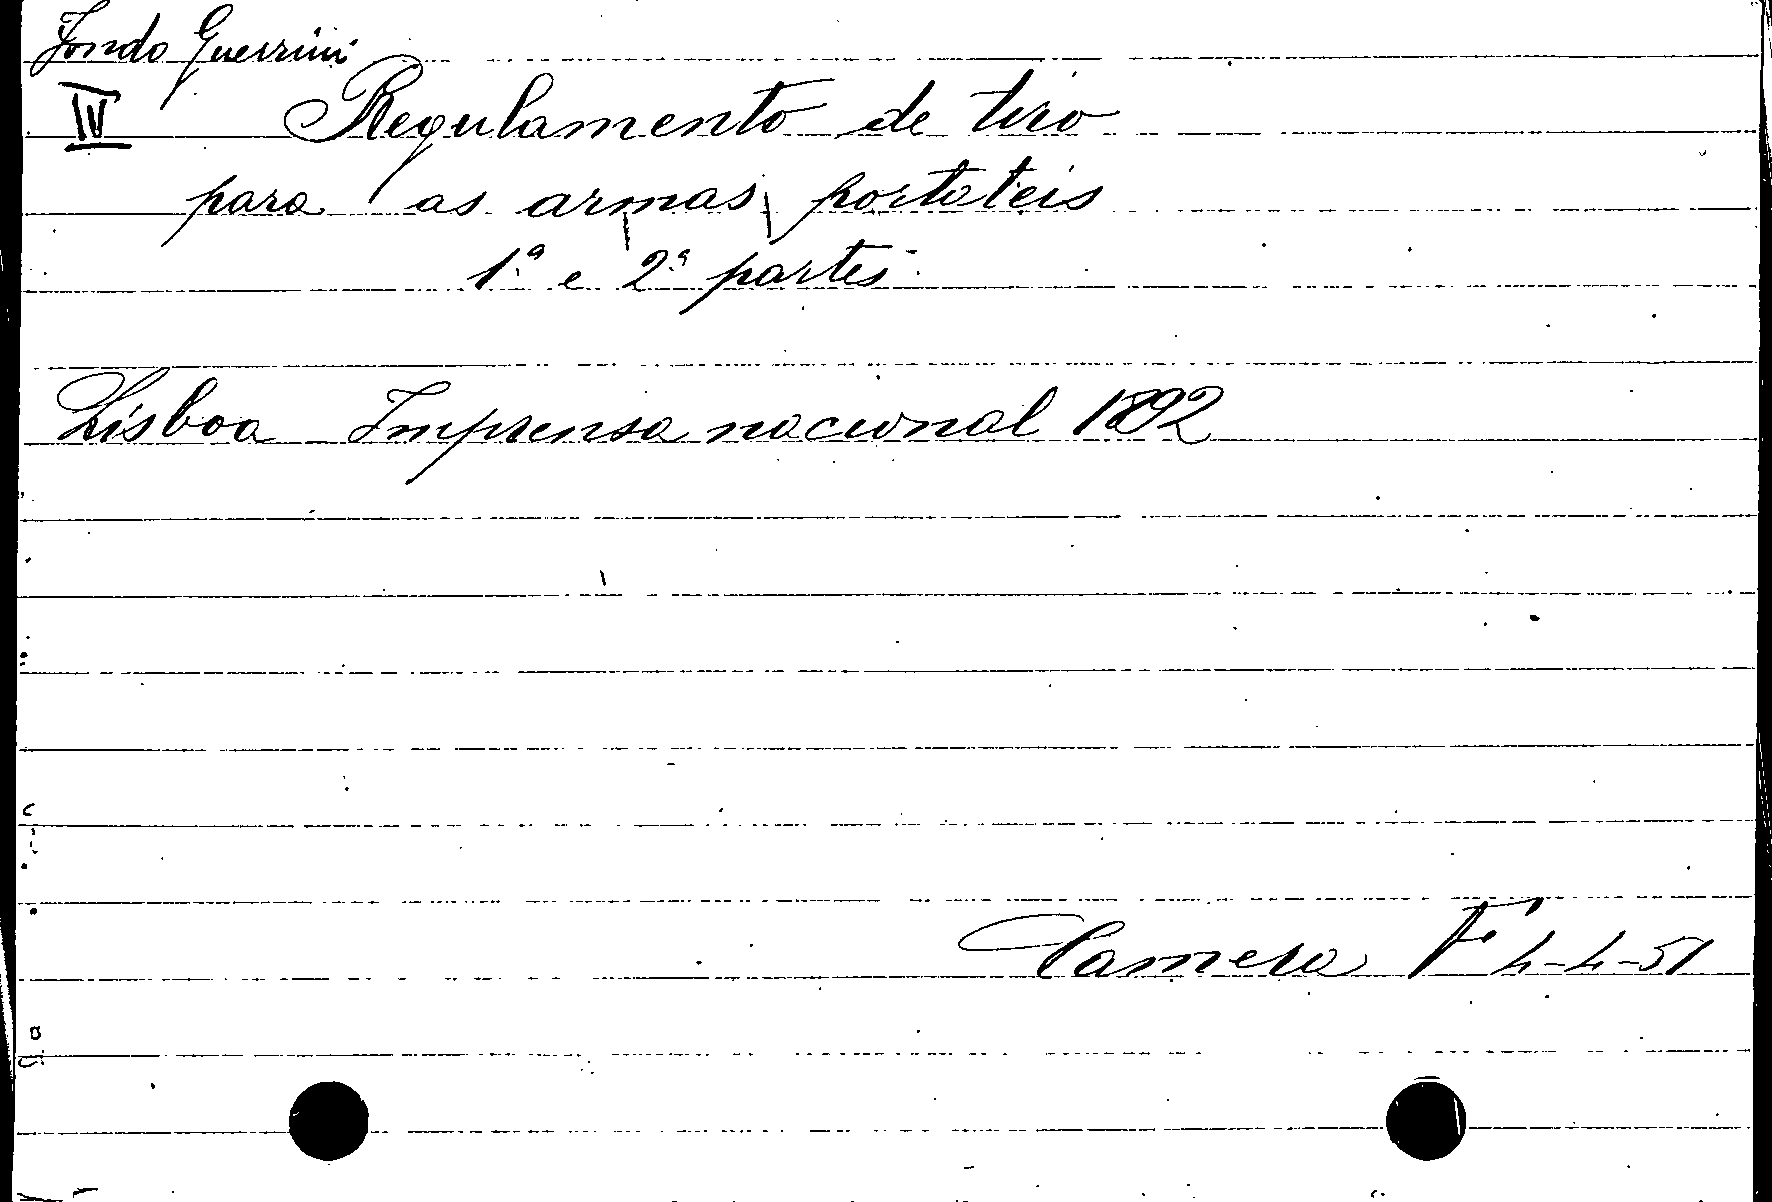 Fondo Guerrini
IV Regulamento de tiro
para as armas portateis
1.ª e 2.ª partes
Lisboa Imprensa nacional 1892
Camera F 4-4-51